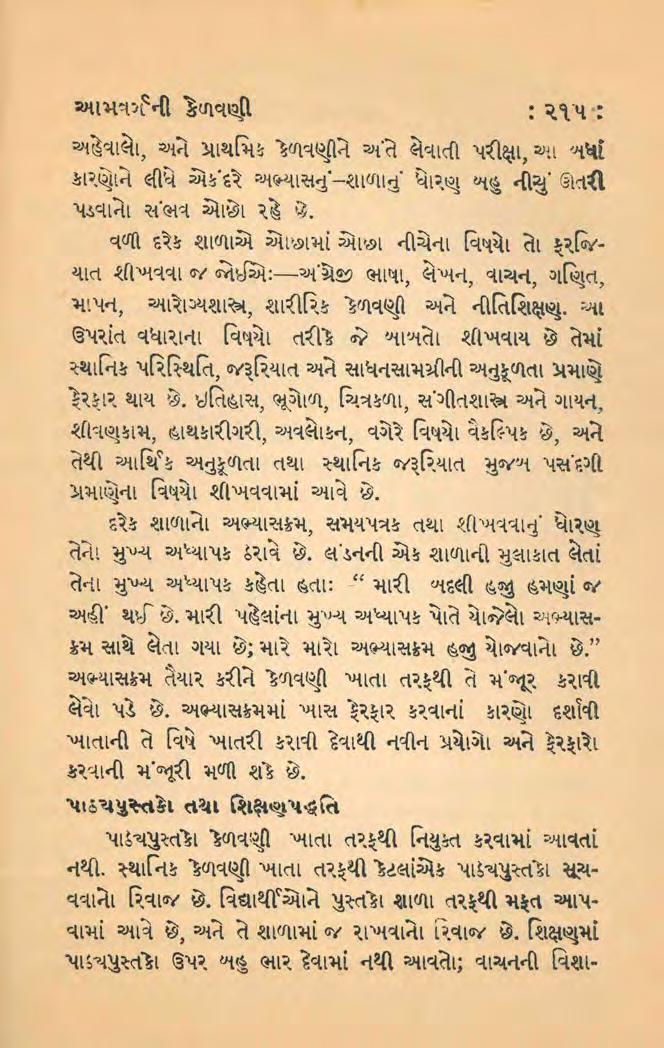 આમવર્ગની કેળવણી : ૨૧૫ :
અહેવાલો, અને પ્રાથમિક કેળવણીને અંતે લેવાતી પરીક્ષા, આ બધાં
કારણોને લીધે એકંદરે અભ્યાસનું–શાળાનું ધોરણ બહુ નીચું ઊતરી
પડવાનો સંભવ ઓછો રહે છે.
વળી દરેક શાળાએ ઓછામાં ઓછા નીચેના વિષયો તો ફરજિ-
યાત શીખવવા જ જોઈએઃ—અંગ્રેજી ભાષા, લેખન, વાચન, ગણિત,
માપન, આરોગ્યશાસ્ત્ર, શારીરિક કેળવણી અને નીતિશિક્ષણ. આ
ઉપરાંત વધારાના વિષયો તરીકે જે બાબતો શીખવાય છે તેમાં
સ્થાનિક પરિસ્થિતિ, જરૂરિયાત અને સાધનસામગ્રીની અનુકૂળતા પ્રમાણે
ફેરફાર થાય છે. ઇતિહાસ, ભૂગોળ, ચિત્રકળા, સંગીતશાસ્ત્ર અને ગાયન,
શીવણકામ, હાથકારીગરી, અવલોકન, વગેરે વિષયો વૈકલ્પિક છે, અને
તેથી આર્થિક અનુકૂળતા તથા સ્થાનિક જરૂરિયાત મુજબ પસંદગી
પ્રમાણેના વિષયો શીખવવામાં આવે છે.
દરેક શાળાનો અભ્યાસક્રમ, સમયપત્રક તથા શીખવવાનું ધોરણ
તેનો મુખ્ય અધ્યાપક ઠરાવે છે. લંડનની એક શાળાની મુલાકાત લેતાં
તેના મુખ્ય અધ્યાપક કહેતા હતાઃ “ મારી બદલી હજી હમણાં જ
અહીં થઈ છે. મારી પહેલાંના મુખ્ય અધ્યાપક પોતે યોજેલો અભ્યાસ-
ક્રમ સાથે લેતા ગયા છે; મારે મારો અભ્યાસક્રમ હજી યોજવાનો છે.”
અભ્યાસક્રમ તૈયાર કરીને કેળવણી ખાતા તરફથી તે મંજૂર કરાવી
લેવો પડે છે. અભ્યાસક્રમમાં ખાસ ફેરફાર કરવાનાં કારણો દર્શાવી
ખાતાની તે વિષે ખાતરી કરાવી દેવાથી નવીન પ્રયોગો અને ફેરફારો
કરવાની મંજૂરી મળી શકે છે.
પાઠ્યપુસ્તકો તથા શિક્ષણપદ્ધતિ
પાઠ્યપુસ્તકો કેળવણી ખાતા તરફથી નિયુક્ત કરવામાં આવતાં
નથી. સ્થાનિક કેળવણી ખાતા તરફથી કેટલાંએક પાઠ્યપુસ્તકો સૂચ-
વવાનો રિવાજ છે. વિદ્યાર્થીઓને પુસ્તકો શાળા તરફથી મફત આપ-
વામાં આવે છે, અને તે શાળામાં જ રાખવાનો રિવાજ છે. શિક્ષણમાં
પાઠ્યપુસ્તકો ઉપર બહુ ભાર દેવામાં નથી આવતો; વાચનની વિશા-